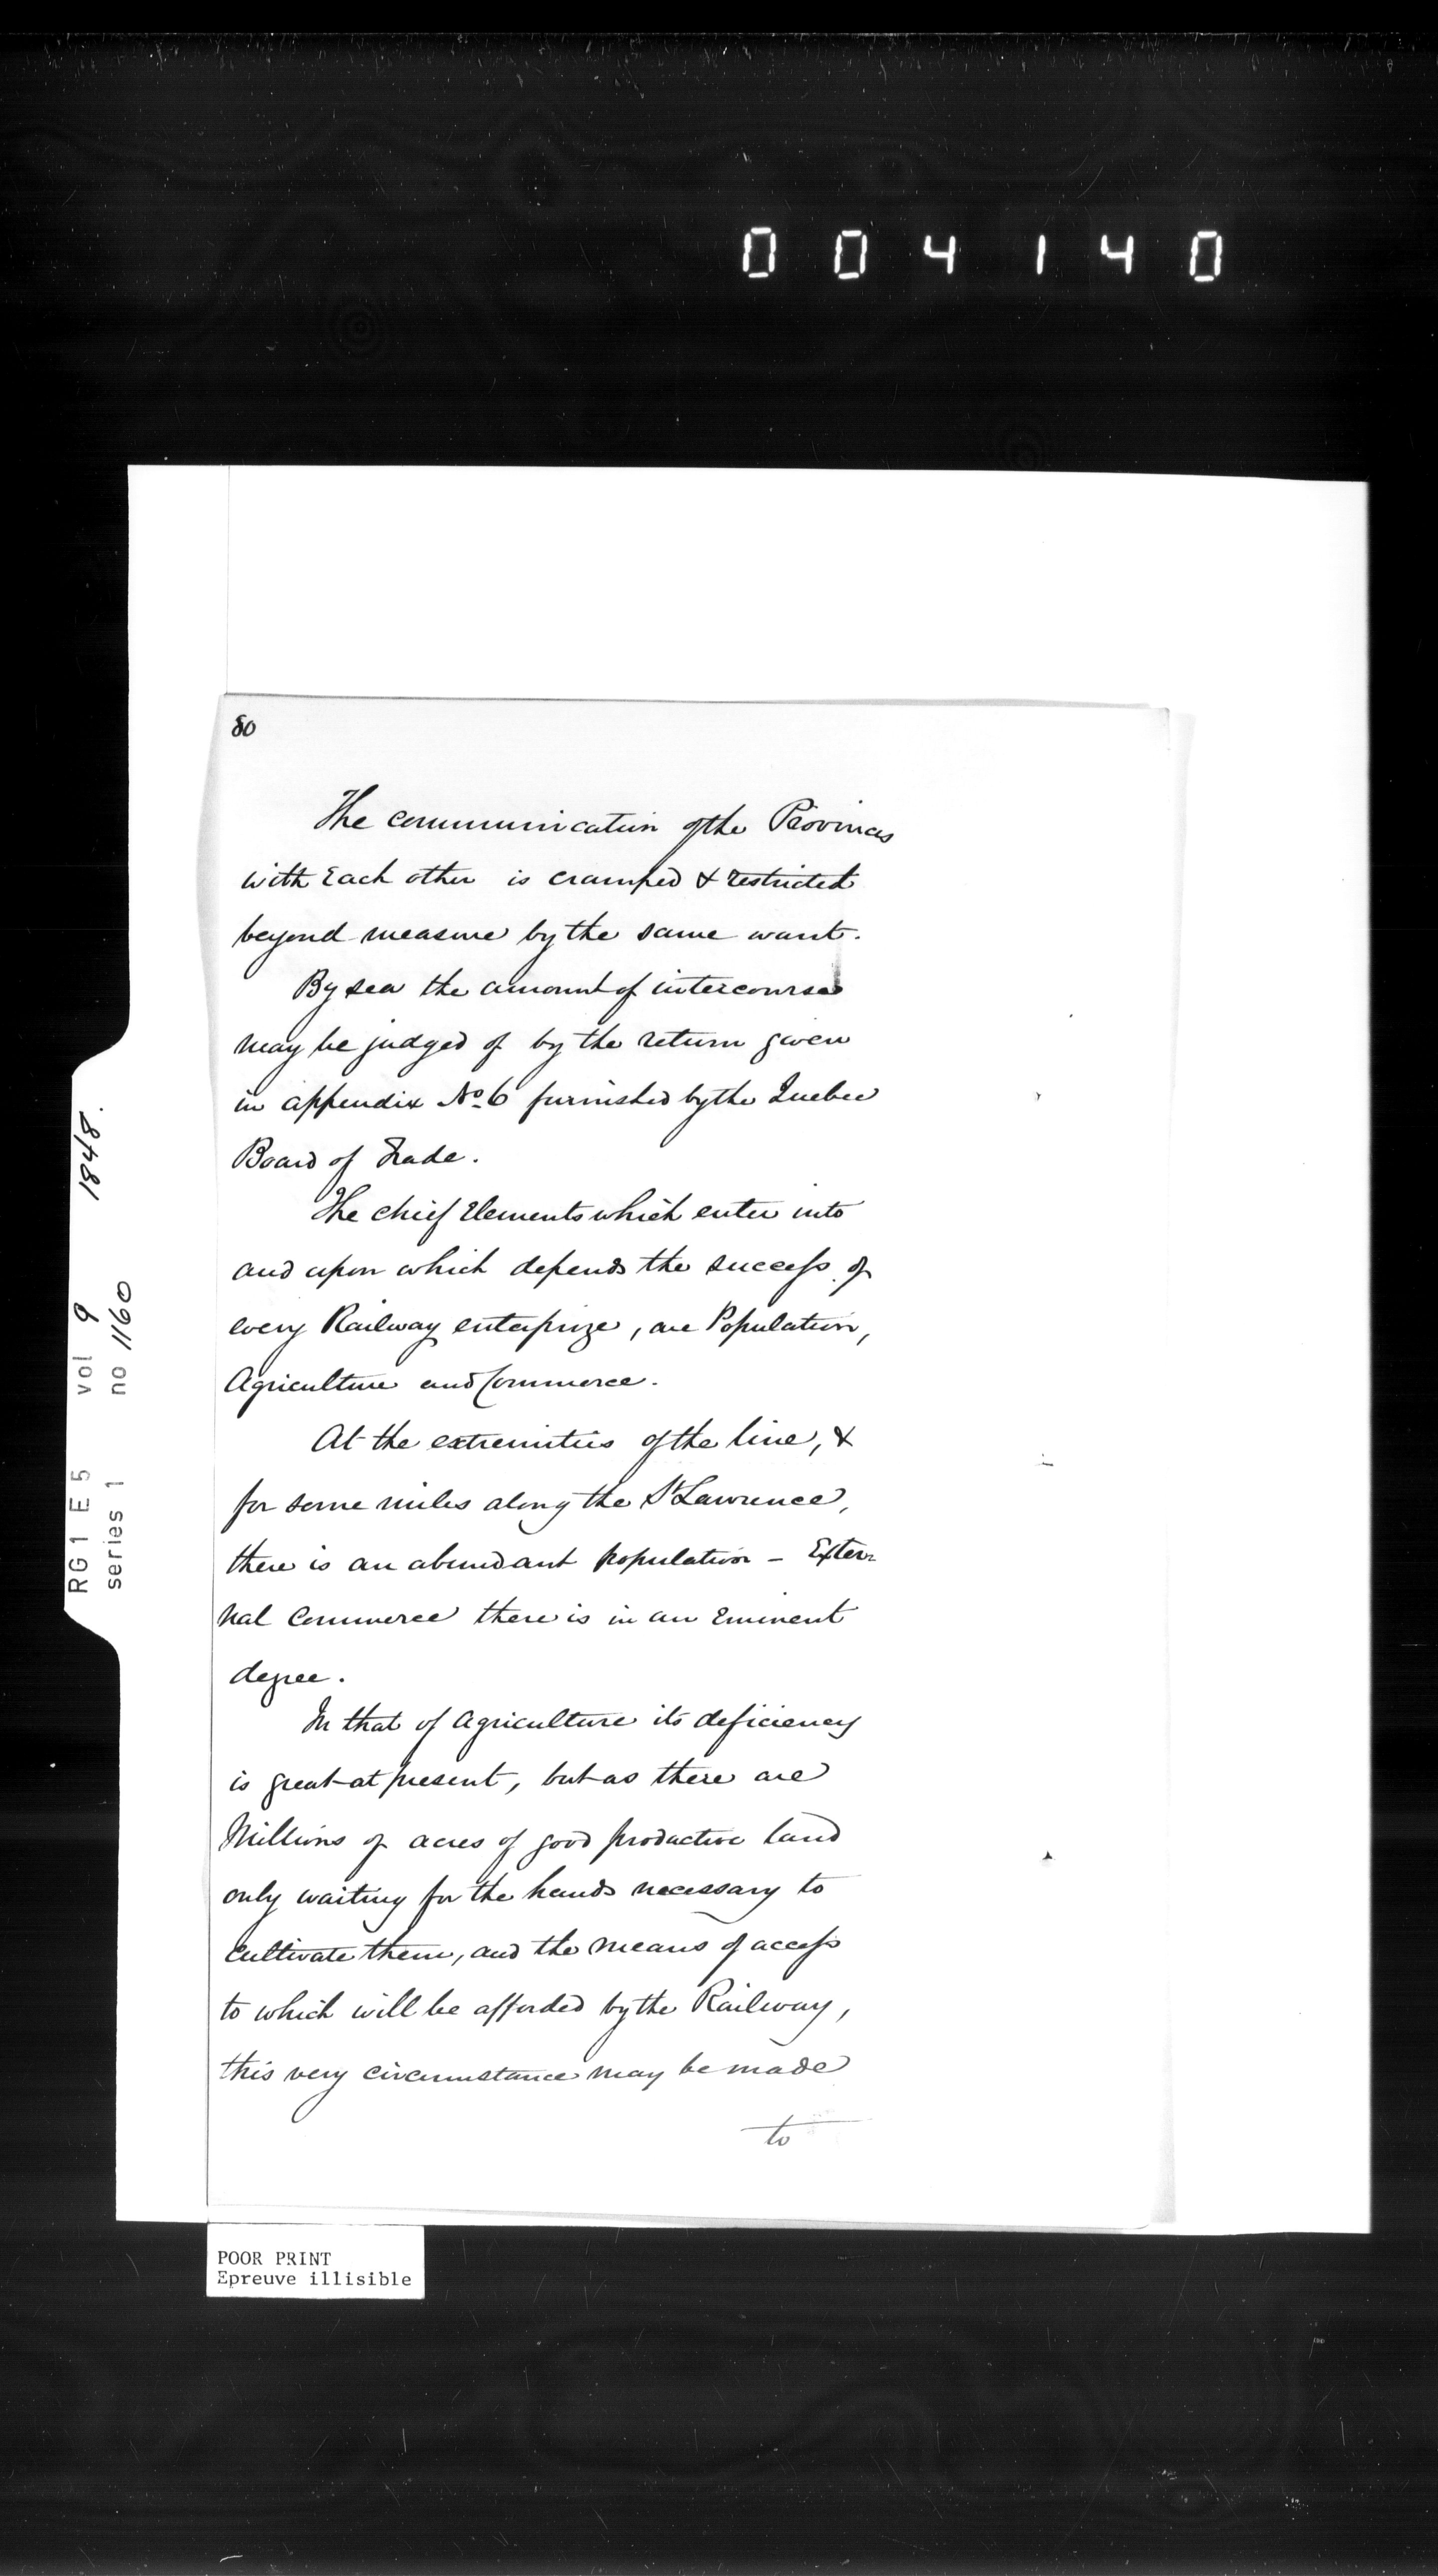 004140
80
The communication of the Provinces
with Each other is cramped & restricted
beyond measure by the same want.
By sea the amount of intercourse
may be judged of by the return given
in appendix No. 6 furnished by the Quebec
Board of Trade.
The chief Elements which enter into
and upon which depends the success of
every Railway enterprize, are Population,
Agriculture and Commerce.
At the extremities of the line, &
for some miles along the St Lawrence,
there is an abundant population - Exter-
nal Commerce there is in an Eminent
degree.
In that of Agriculture its deficiency
is great at present, but as there are
Millions of acres of good productive land
only waiting for the hands necessary to
cultivate them, and the means of access
to which will be afforded by the Railway,
this very circumstance may be made
to
RG 1 E 5 vol 9 1848.
series 1 no 1160
POOR PRINT
Epreuve illisible